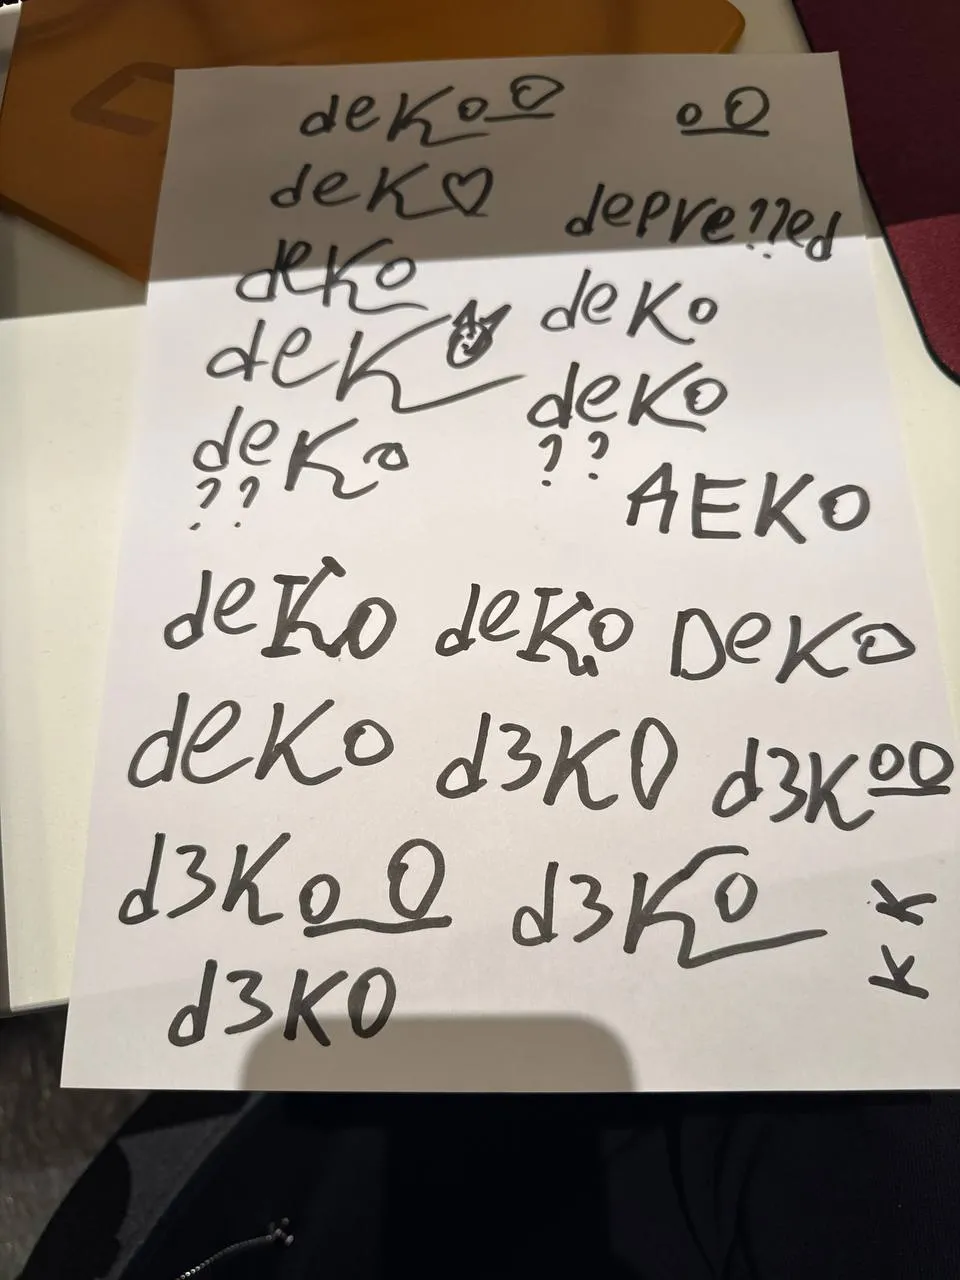 deKoO oO
deK♡
depre??ed
deKo
deKo
deK
deKo
deKo
?? ??
AEKO
deKo deKo DeKo
deKo d3KO d3KoO
d3KoO d3Ko
K K
d3KO